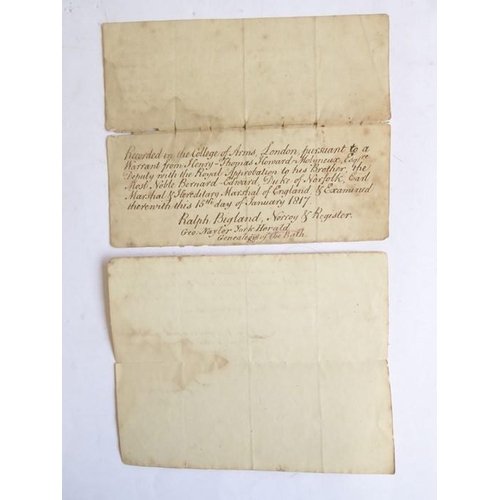 Recorded in the College of Arms, London, pursuant to a
Warrant from Henry-Thomas Howard-Molyneux, Esqre.
Deputy with the Royal Approbation to his Brother, the
Most Noble Bernard-Edward, Duke of Norfolk, Earl
Marshal & Hereditary Marshal of England, & Examined
therewith this 15th day of January 1817.
Ralph Bigland, Norroy & Register.
Geo. Naylor York Herald
Genealogist of the Bath.